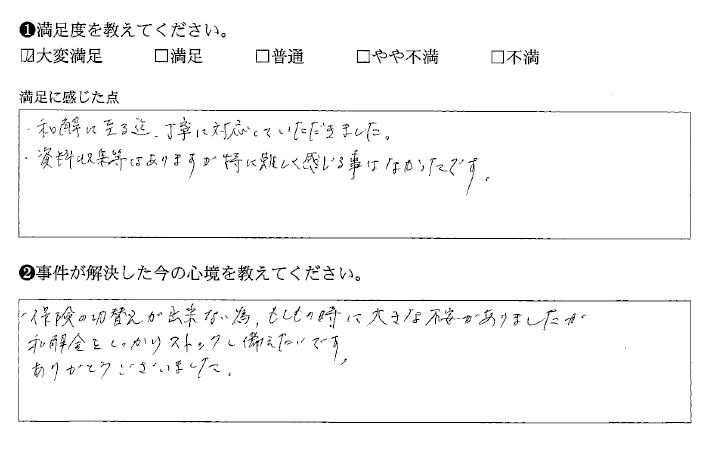 ❶満足度を教えてください。
☑大変満足 □満足 □普通 □やや不満 □不満
満足に感じた点
・和解に至る迄、丁寧に対応していただきました。
・資料収集等はありますが特に難しく感じる事はなかったです。
❷事件が解決した今の心境を教えてください。
・保険の切替えが出来ない為、もしもの時に大きな不安がありましたが
和解金をしっかりストックし備えたいです。
ありがとうございました。